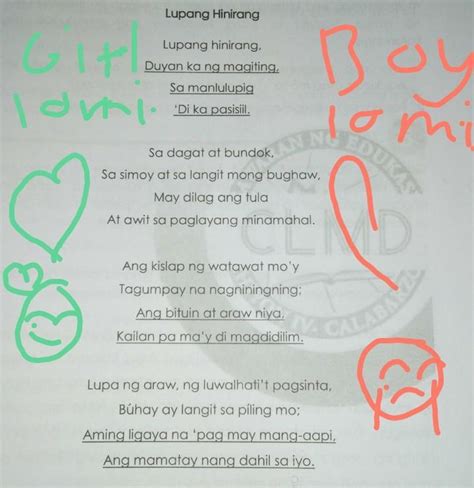 Lupang Hinirang
Girl
Boy
10 mi
Lupang hinirang,
Duyan ka ng magiting,
Sa manlulupig
'Di ka pasisiil.
Sa dagat at bundok,
Sa simoy at sa langit mong bughaw,
May dilag ang tula
At awit sa paglayang minamahal.
CLMD
Ang kislap ng watawat mo'y
Tagumpay na nagniningning;
Ang bituin at araw niya,
Kailan pa ma'y di magdidilim.
IV-A CALABARZ
Lupa ng araw, ng luwalhati't pagsinta,
Bûhay ay langit sa piling mo;
Aming ligaya na 'pag may mang-aapi,
Ang mamatay nang dahil sa iyo.